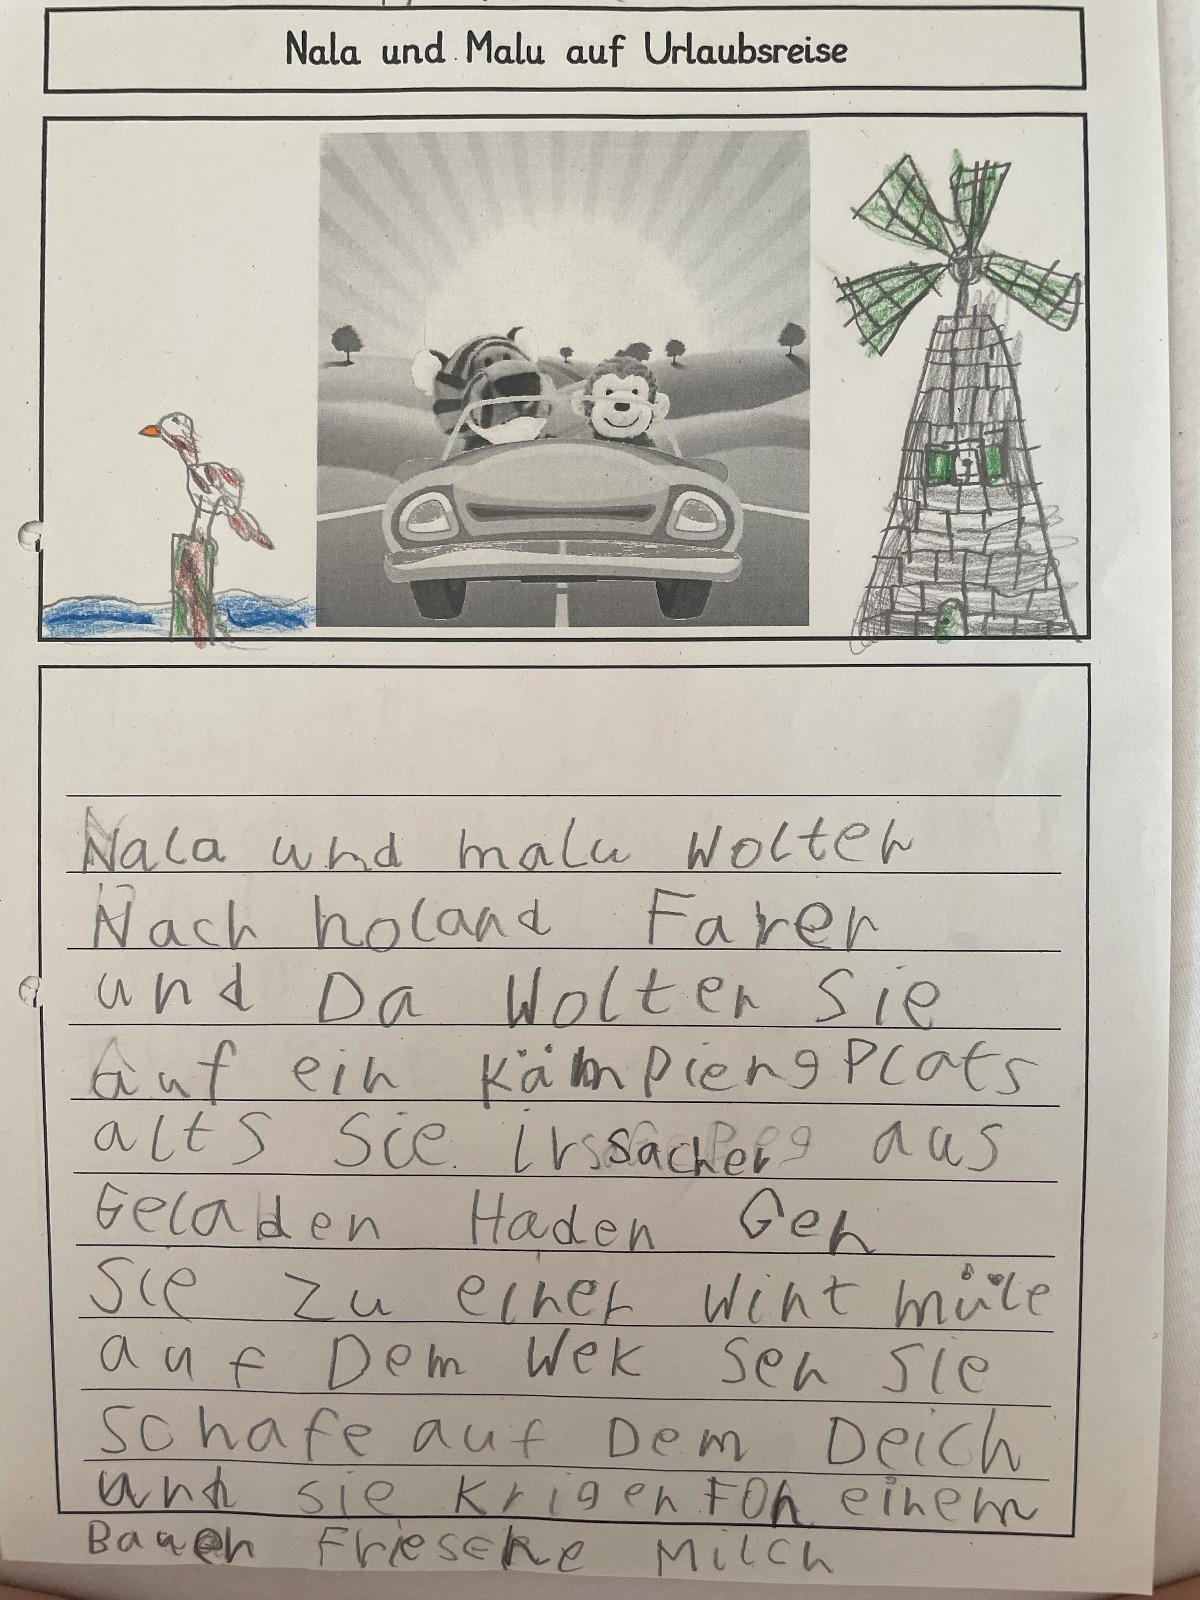 Nala und Malu auf Urlaubsreise
Nala und malu Wolten
Nach holand Faren
und Da Wolten Sie
auf ein KämpiengPlats
alts Sie irssachen aus
Geladen Haden Gen
Sie zu einer Wint müle
auf Dem Wek Sen Sie
Schafe auf Dem Deich
und sie Krigen FOn einem
Bauen Frieschke Milch